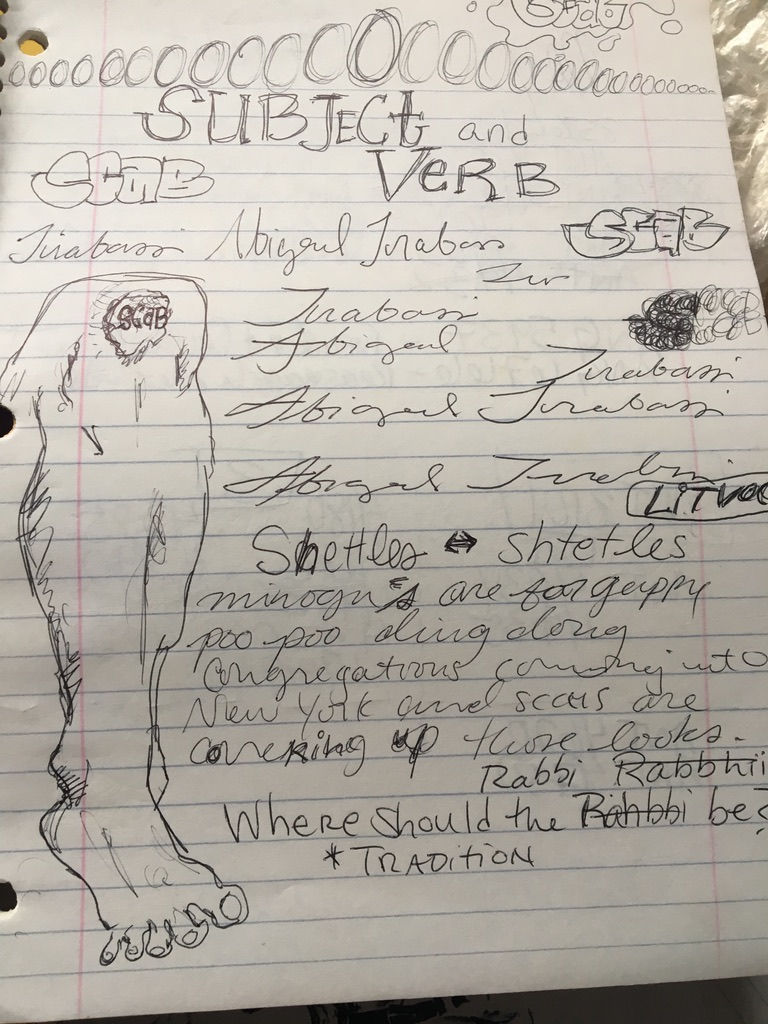 SCaB
SUBJECt and
VeRB
SCaB
SCaB
Tirabassi Abigail Tirabassi
Tir
SCaB
Tirabassi
Abigail
Tirabassi
Abigail Tirabassi
Abigail
LiTVac
Shettles ↔ Shtetles
are for guppy
poo poo ding dong
Congregations coming into
New York and scabs are
covering up those looks.
Rabbi Rabbhii
Where Should the Rahbbi be?
* TRADITION